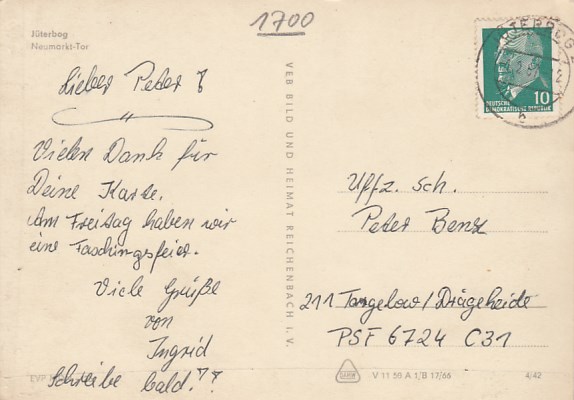 1700
Jüterbog
Neumarkt-Tor
Lieber Peter!
Vielen Dank für
Deine Karte.
Am Freitag haben wir
eine Faschingsfeier.
Viele Grüße
von
Ingrid
Schreibe bald!!
VEB BILD UND HEIMAT REICHENBACH I. V.
DEUTSCHE
DEMOKRATISCHE REPUBLIK
10
Uffz. Sch.
Peter Benz
211 Torgelow/Drögeheide
PSF 6724 C31
V 11 50 A 1/B 17/66
4/42